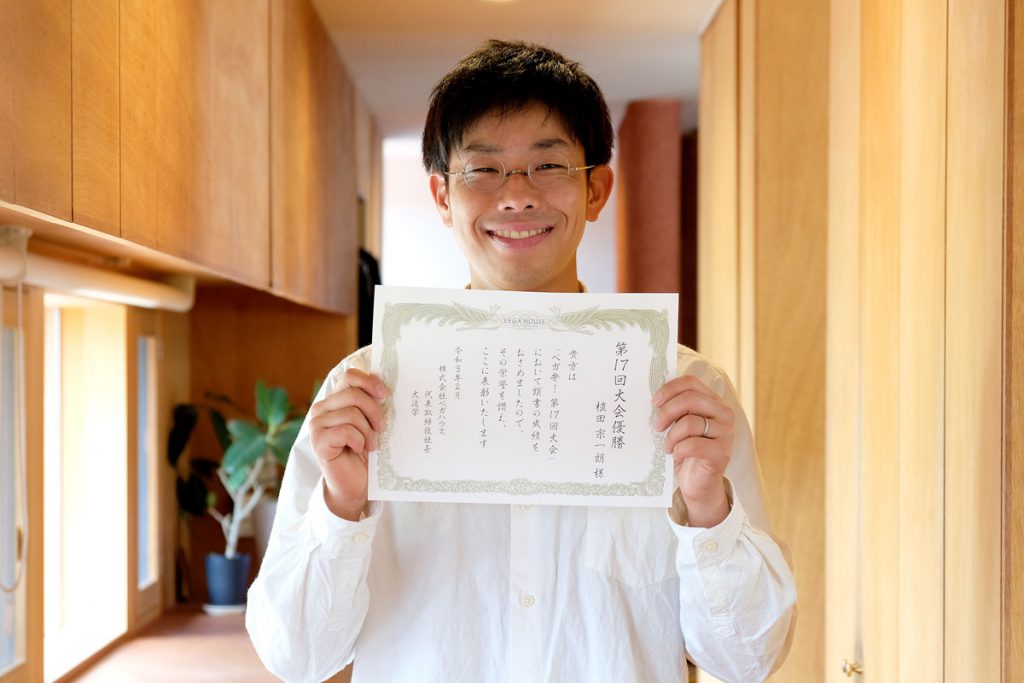 VEGA HOUSE
第17回大会優勝
植田 宗一朗 様
貴方は
「ベガ弁！第17回大会」
において頭書の成績を
おさめましたので、
その栄誉を讃え、
ここに表彰いたします
令和3年2月
株式会社ベガハウス
代表取締役社長
大迫学